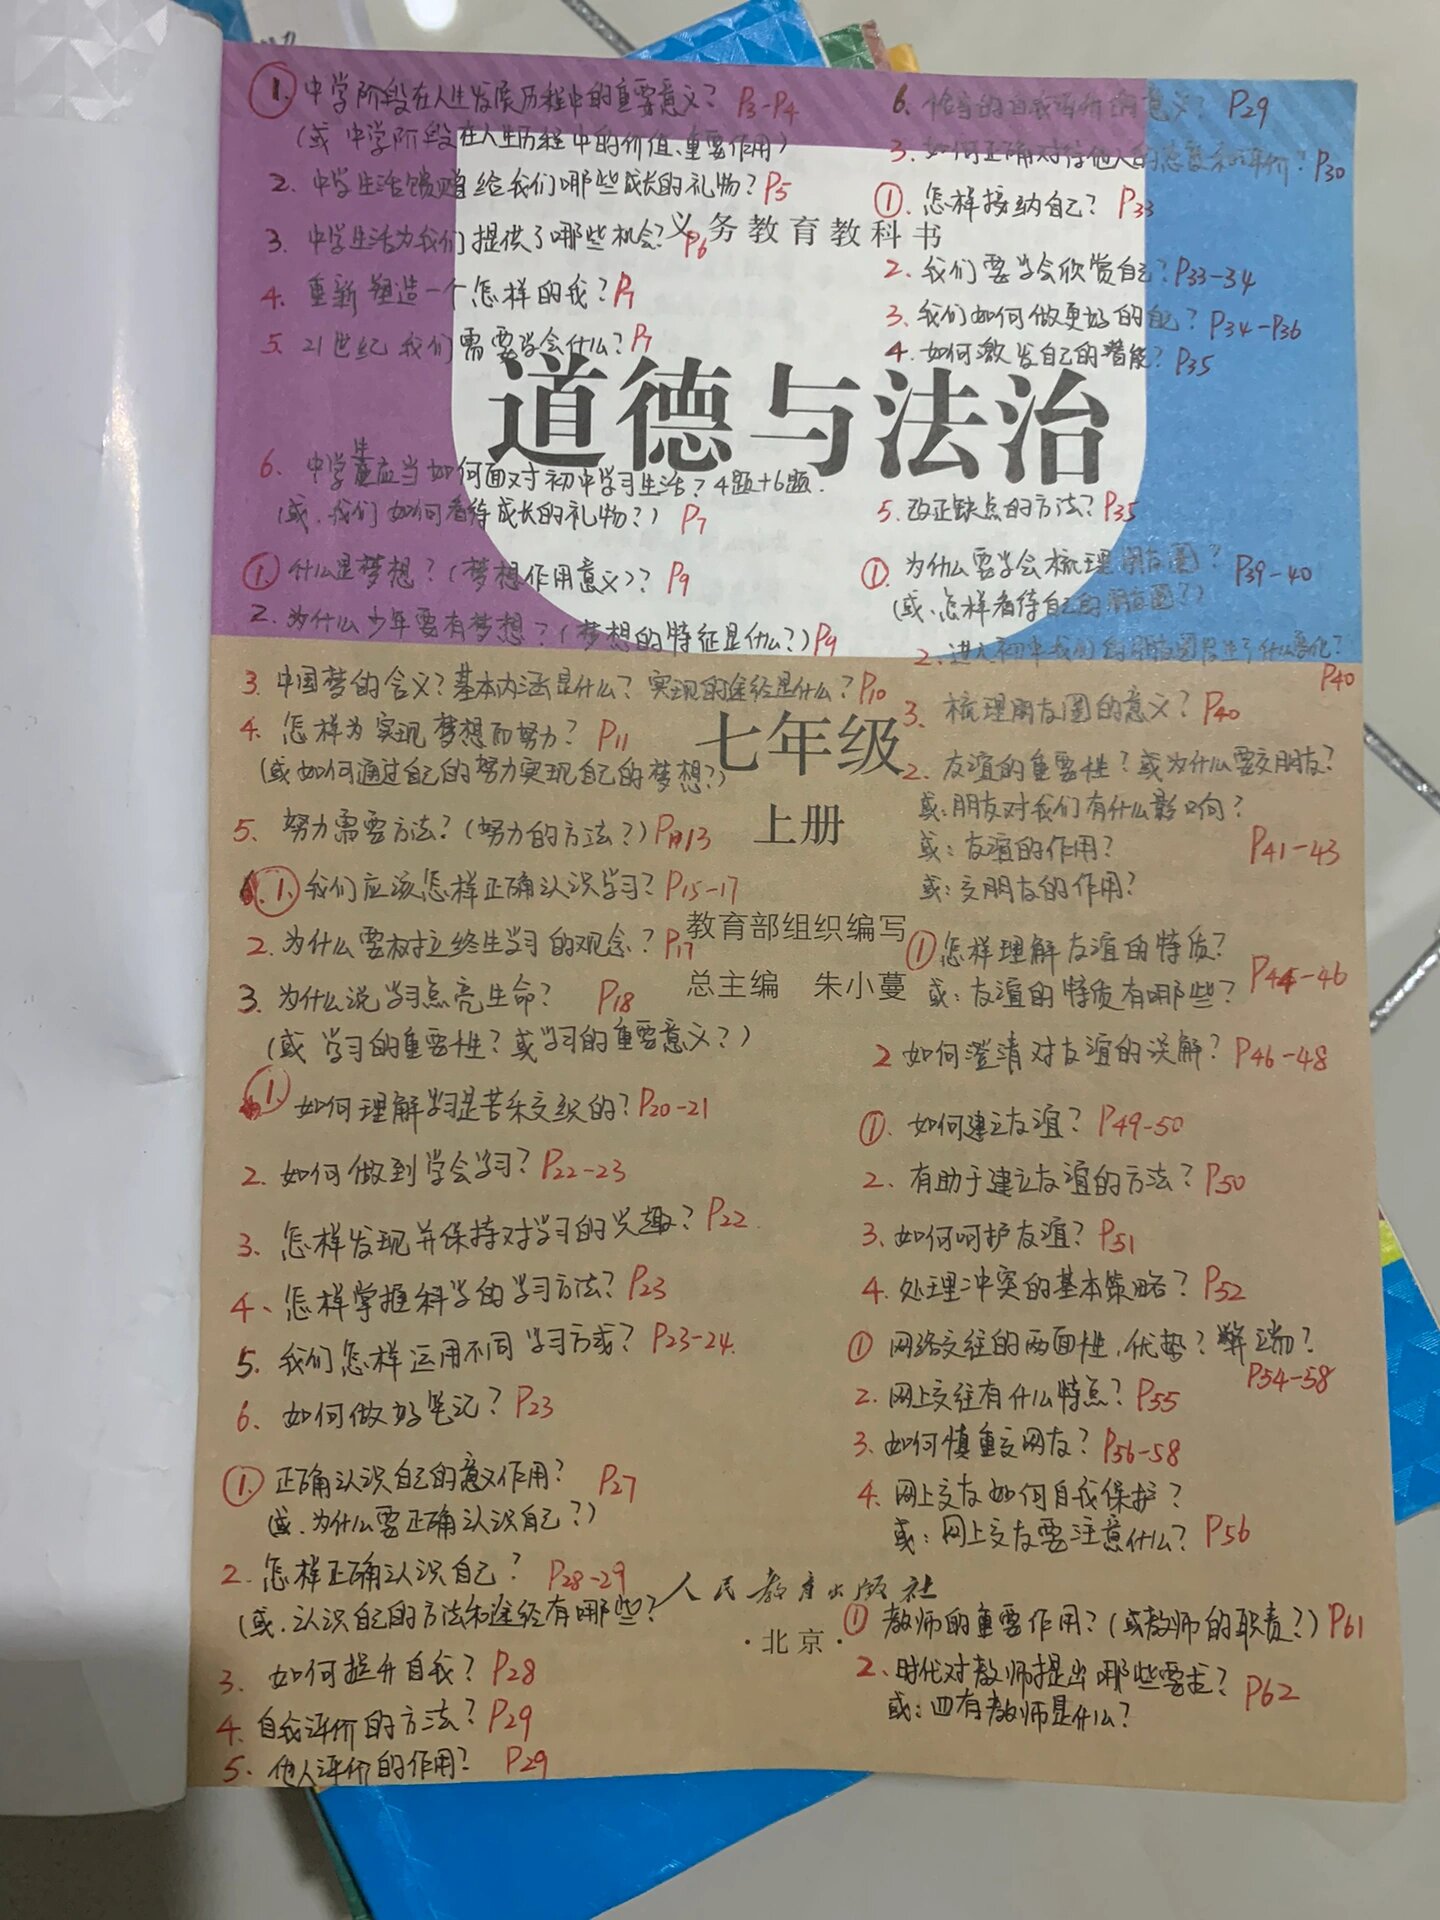 ①. 中学阶段在人生发展历程中的重要意义? P3-P4
(或 中学阶段在人生历程中的价值、重要作用)
2. 中学生活馈赠给我们哪些成长的礼物? P5
3. 中学生活为我们提供了哪些机会? P6
4. 重新塑造一个怎样的我? P7
5. 21世纪我们需要学会什么? P7
6. 中学生应当如何面对初中学习生活? 4题+6题.
(或.我们如何看待成长的礼物?) P7
①. 什么是梦想? (梦想作用意义)? P9
2. 为什么少年要有梦想? (梦想的特征是什么?) P9
3. 中国梦的含义? 基本内涵是什么? 实现的途径是什么? P10
4. 怎样为实现梦想而努力? P11
(或如何通过自己的努力实现自己的梦想?)
5. 努力需要方法? (努力的方法?) P13
①. 我们应该怎样正确认识学习? P15-17
2. 为什么要树立终生学习的观念? P17
3. 为什么说学习点亮生命? P18
(或 学习的重要性? 或学习的重要意义?)
① 如何理解学习是苦乐交织的? P20-21
2. 如何做到学会学习? P22-23
3. 怎样发现并保持对学习的兴趣? P22
4、怎样掌握科学的学习方法? P23
5. 我们怎样运用不同学习方式? P23-24.
6. 如何做好笔记? P23
①. 正确认识自己的意义作用? P27
(或.为什么要正确认识自己?)
2. 怎样正确认识自己? P28-29
(或.认识自己的方法和途径有哪些?
3. 如何提升自我? P28
4. 自我评价的方法? P29
5. 他人评价的作用? P29
6. 恰当的自我评价的意义? P29
3. 如何正确对待他人的态度和评价? P30
①. 怎样接纳自己? P33
2. 我们要学会欣赏自己? P33-34
3. 我们如何做更好的自己? P34-P36
4. 如何激发自己的潜能? P35
5. 改正缺点的方法? P35
①. 为什么要学会梳理朋友圈? P39-40
(或、怎样看待自己的朋友圈?)
2. 进入初中我们的朋友圈发生了什么变化? P40
3. 梳理朋友圈的意义? P40
2. 友谊的重要性? 或为什么要交朋友?
或:朋友对我们有什么影响?
或:友谊的作用? P41-43
或:交朋友的作用?
① 怎样理解友谊的特质?
或:友谊的特质有哪些? P44-46
2 如何澄清对友谊的误解? P46-48
①. 如何建立友谊? P49-50
2. 有助于建立友谊的方法? P50
3. 如何呵护友谊? P51
4. 处理冲突的基本策略? P52
① 网络交往的两面性,优势? 弊端?
P54-58
2. 网上交往有什么特点? P55
3. 如何慎重交网友? P56-58
4. 网上交友如何自我保护?
或:网上交友要注意什么? P56
① 教师的重要作用? (或教师的职责?) P61
2. 时代对教师提出哪些要求? P62
或:四有教师是什么?
义务教育教科书
道德与法治
七年级
上册
教育部组织编写
总主编 朱小蔓
人民教育出版社
·北京·